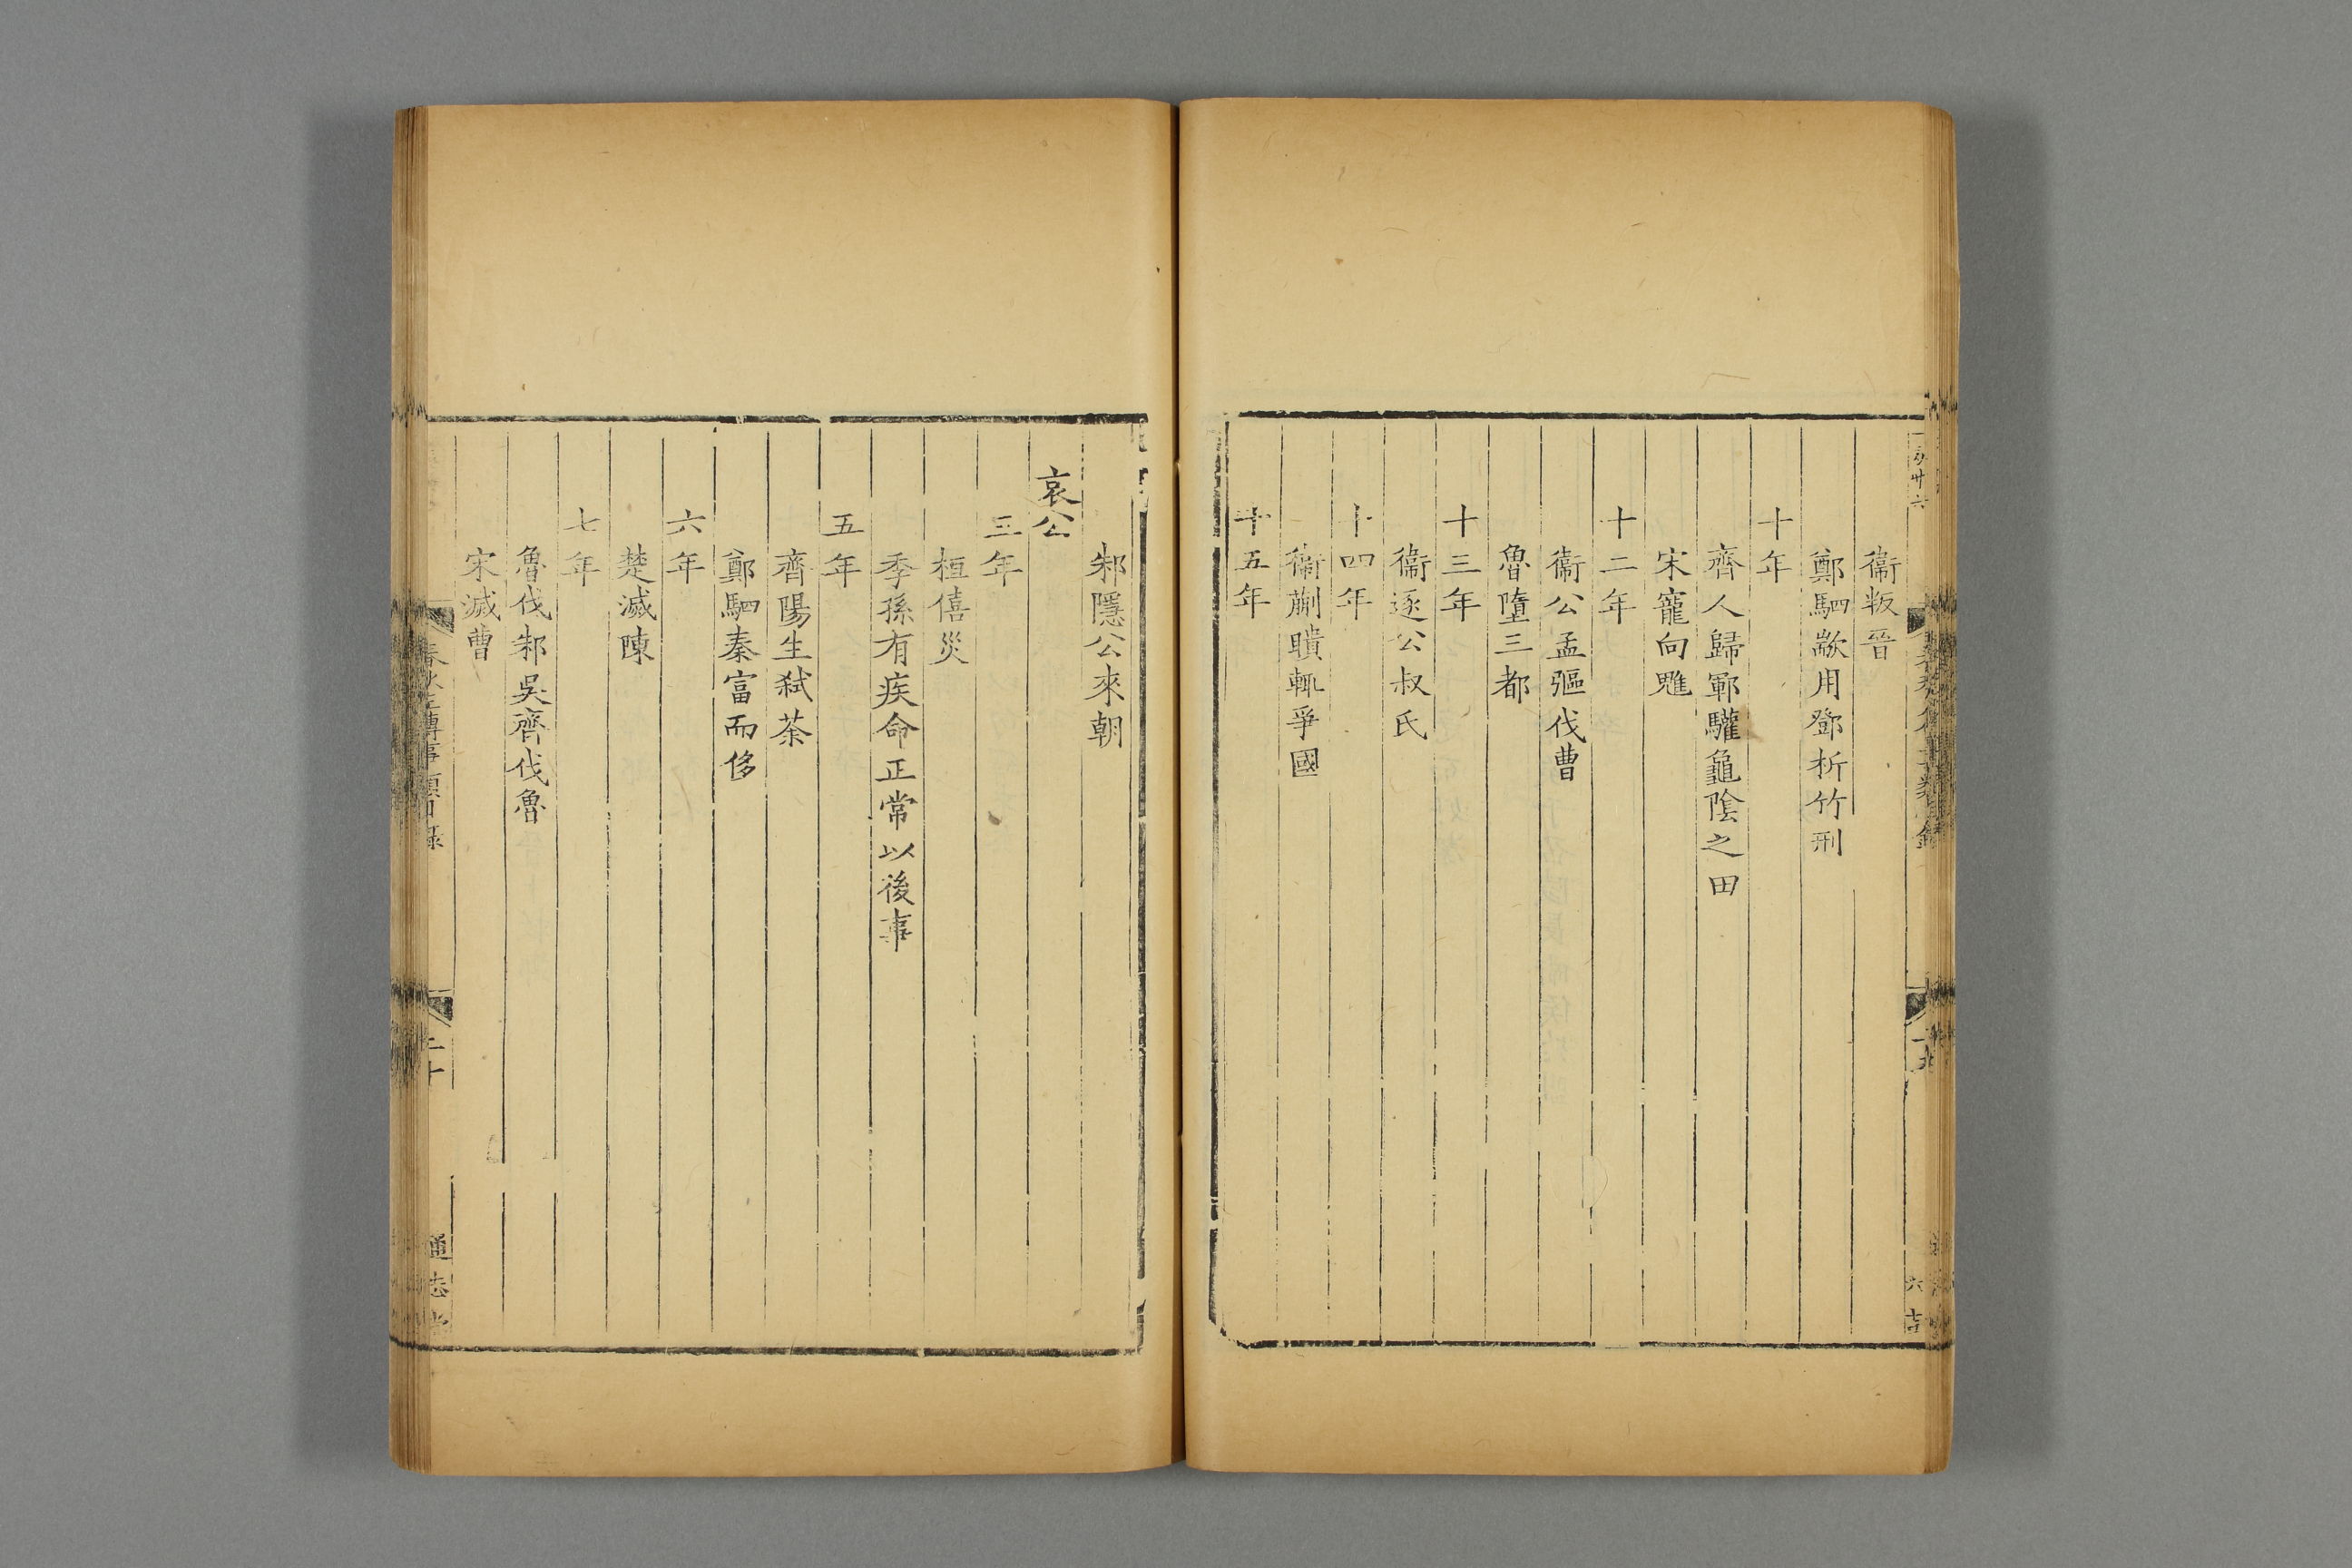 衞叛晉
鄭駟歂用鄧析竹刑
十年
齊人歸鄆驩龜陰之田
宋寵向魋
十二年
衞公孟彄伐曹
魯墮三都
十三年
衞逐公叔氏
十四年
衞蒯聵輒爭國
十五年
邾隱公來朝
哀公
三年
桓僖災
季孫有疾命正常以後事
五年
齊陽生弑荼
鄭駟秦富而侈
六年
楚滅陳
七年
魯伐邾吳齊伐魯
宋滅曹
春秋左傳事類目錄
二十
通志堂